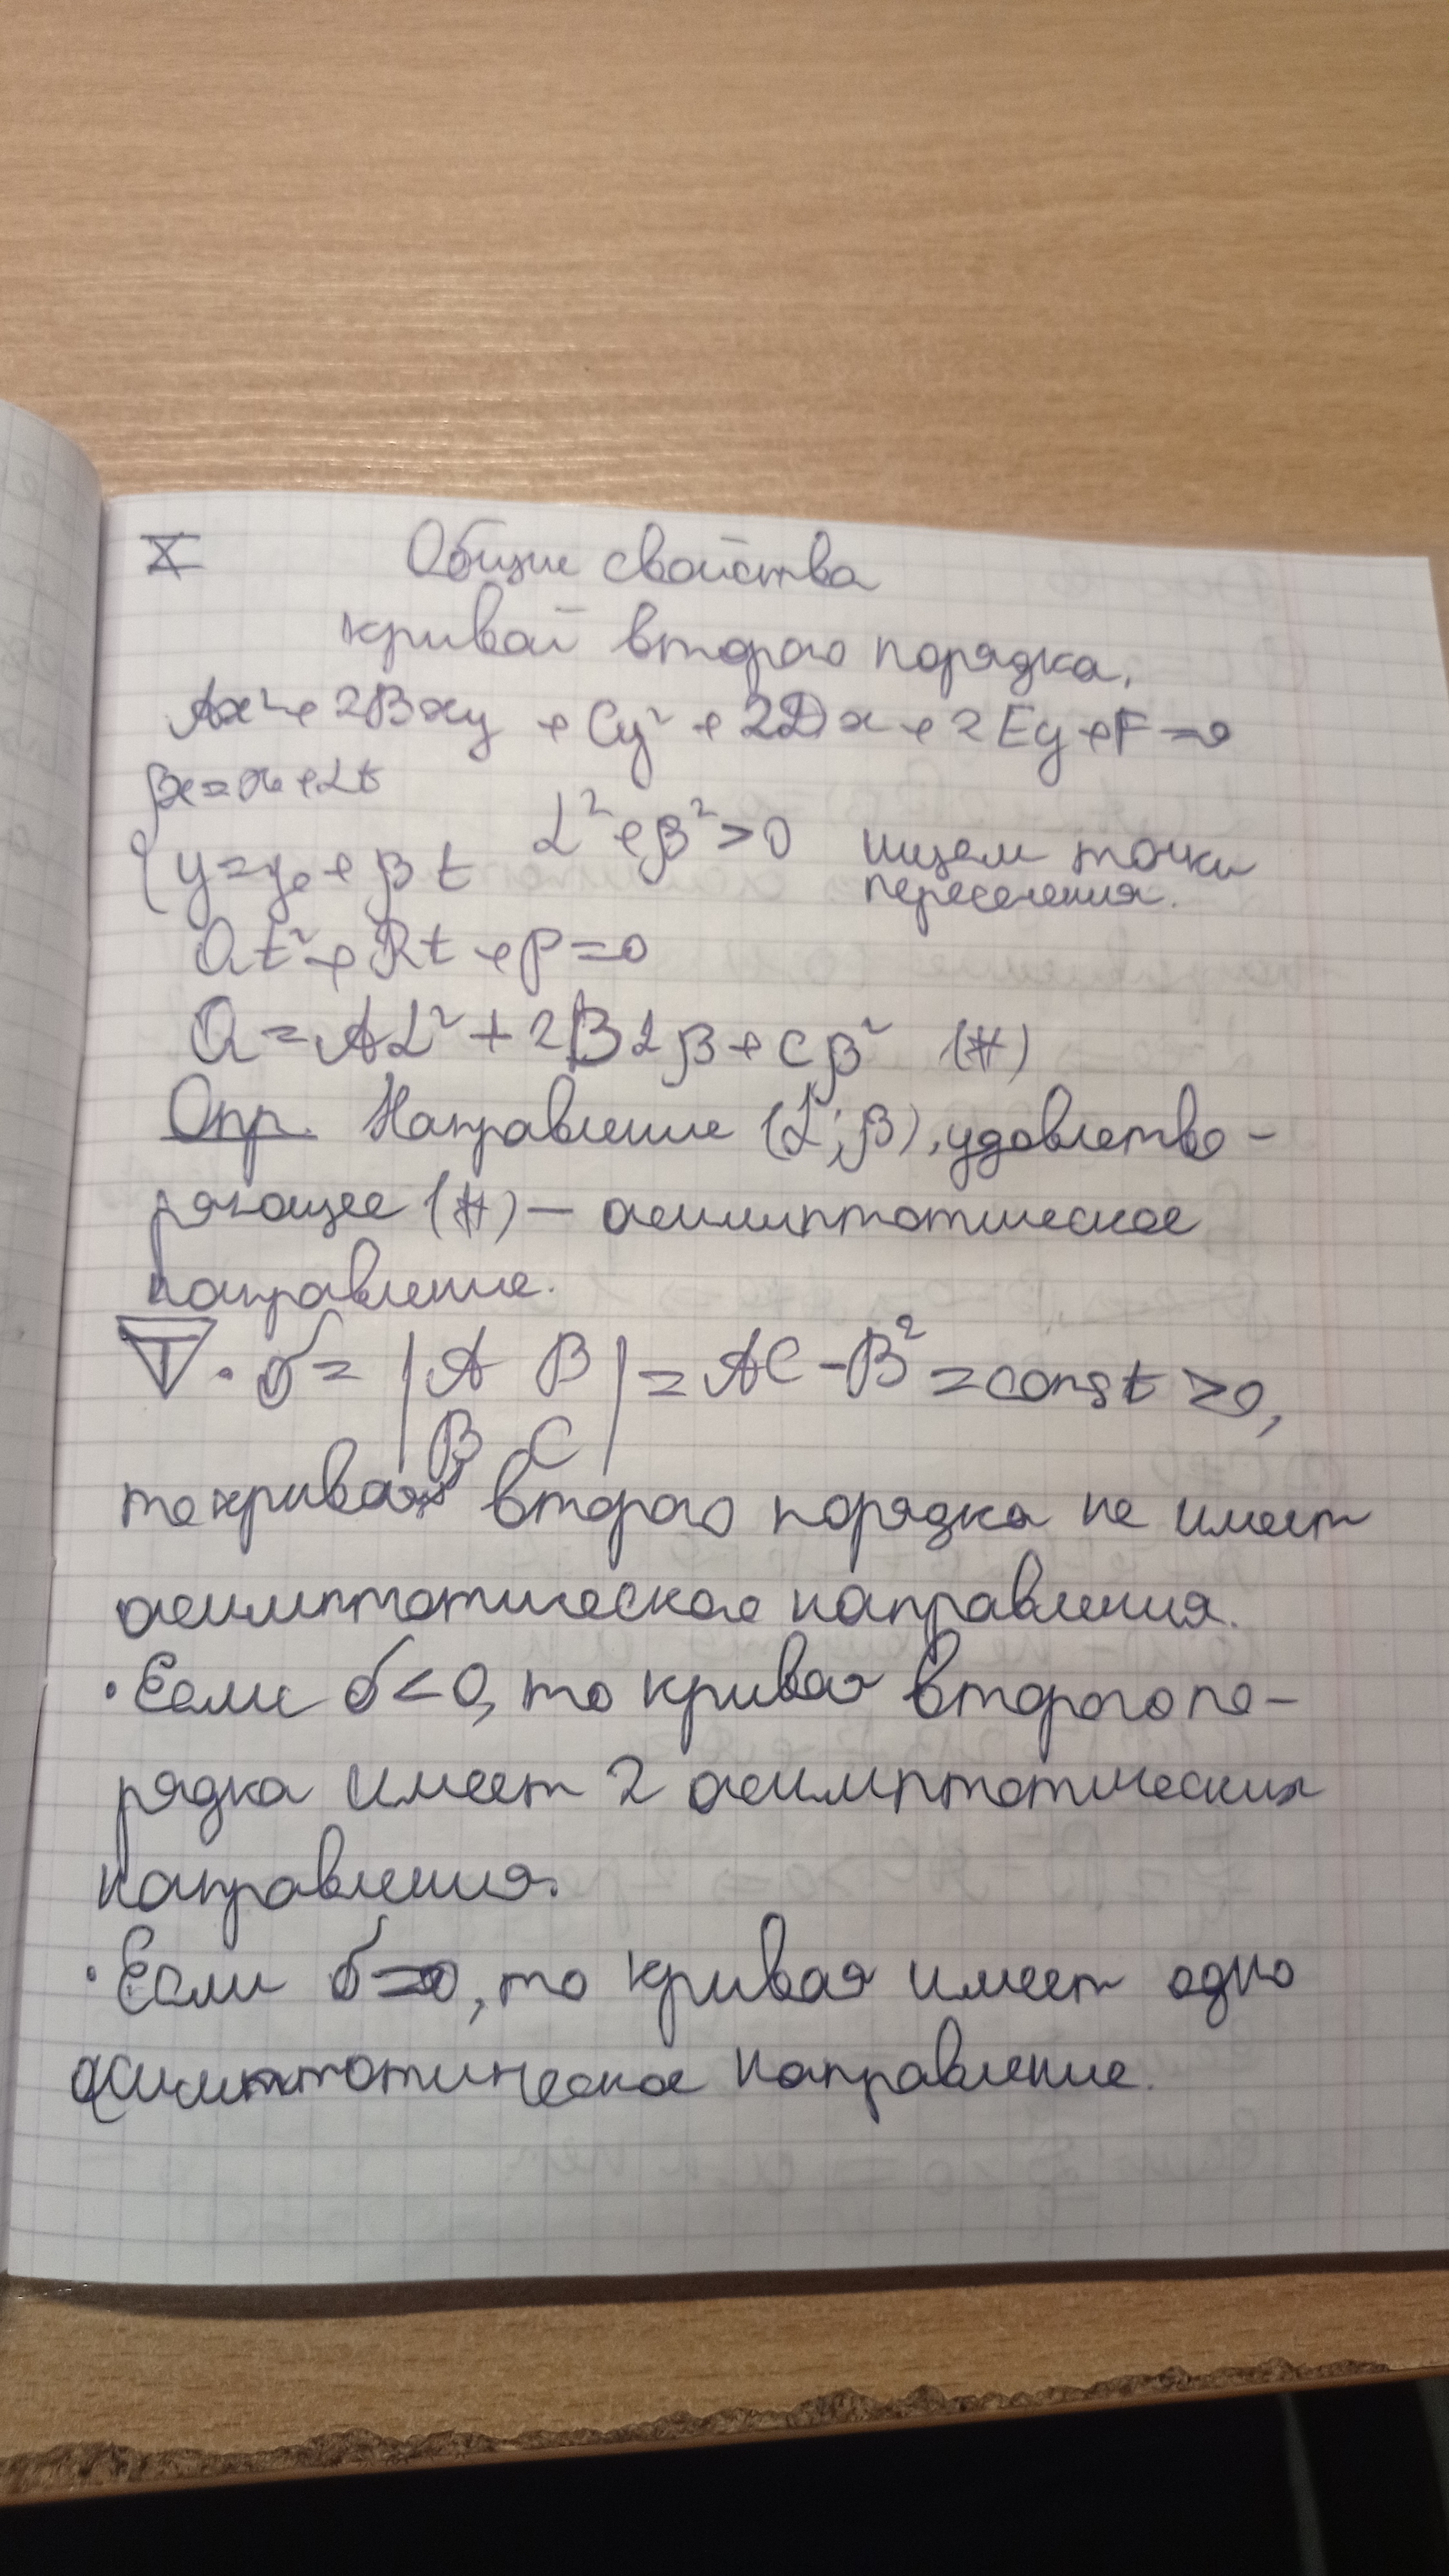 X Общие свойства
кривой второго порядка.
Ax²+2Bxy+Cy²+2Dx+2Ey+F=0
{x=x₀+αt
y=y₀+βt α²+β²>0 ищем точки
пересечения.
Qt²+Rt+P=0
Q=Aα²+2Bαβ+Cβ² (#)
Опр. Направление (α;β), удовлетво-
ряющее (#) — асимптотическое
направление.
T • δ = |A B| = AC-B² = const > 0,
|B C|
то кривая второго порядка не имеет
асимптотическое направления.
• Если δ<0, то кривая второго по-
рядка имеет 2 асимптотических
направления.
• Если δ=0, то кривая имеет одно
асимптотическое направление.